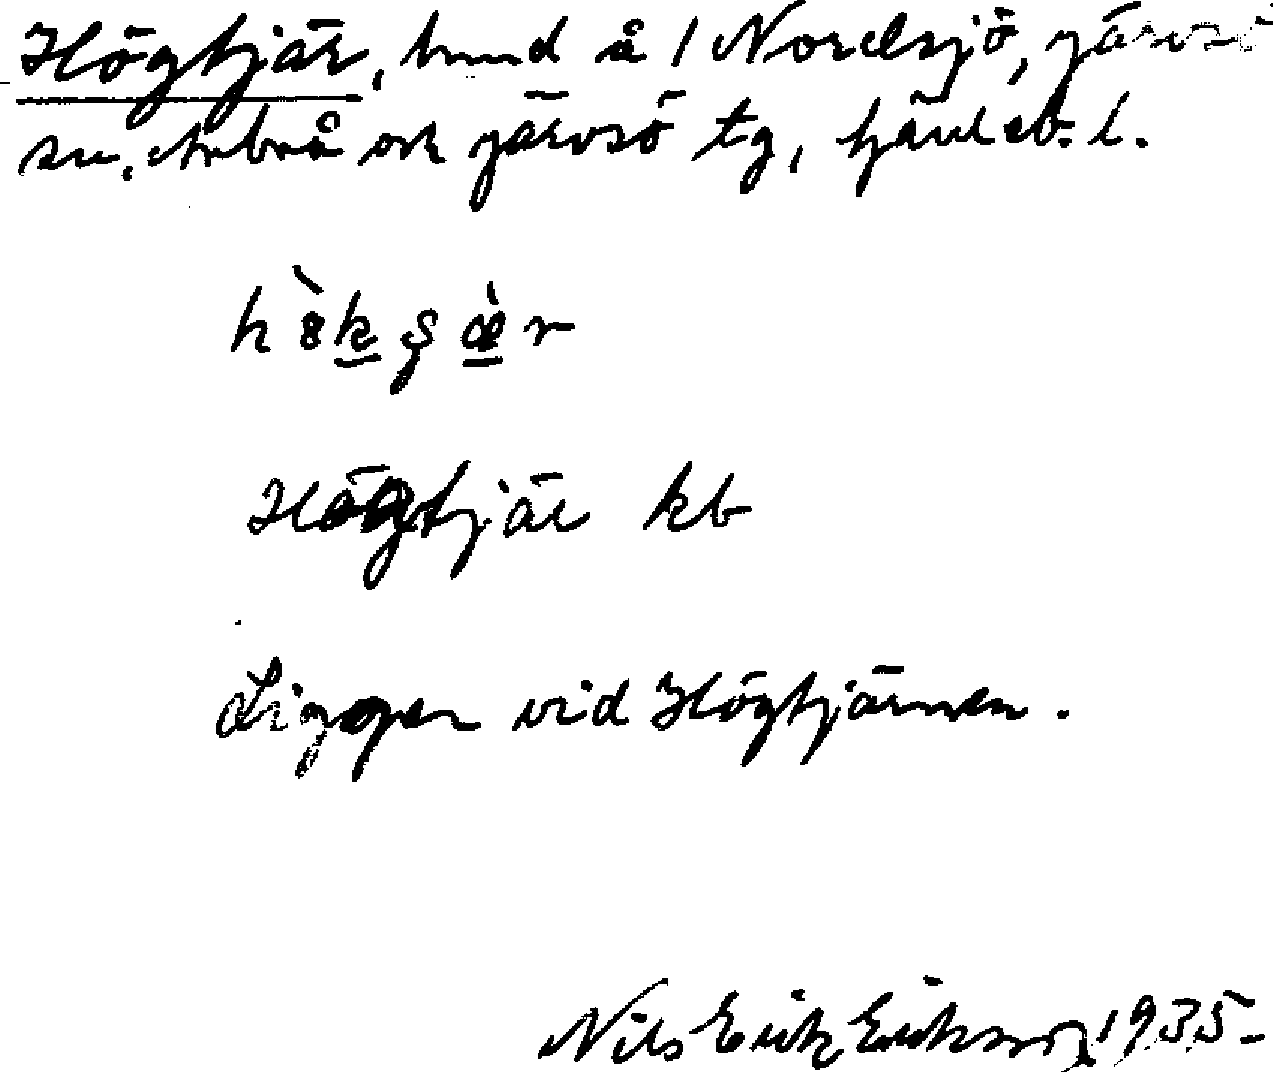 Högtjär, bmd å 1 Nordsjö, Järvsö
sn, Arbrå ock Järvsö tg, Gävleb. l.
Högtjär kb
Ligger vid Högtjärnen.
Nils Erik Eriksson 1935